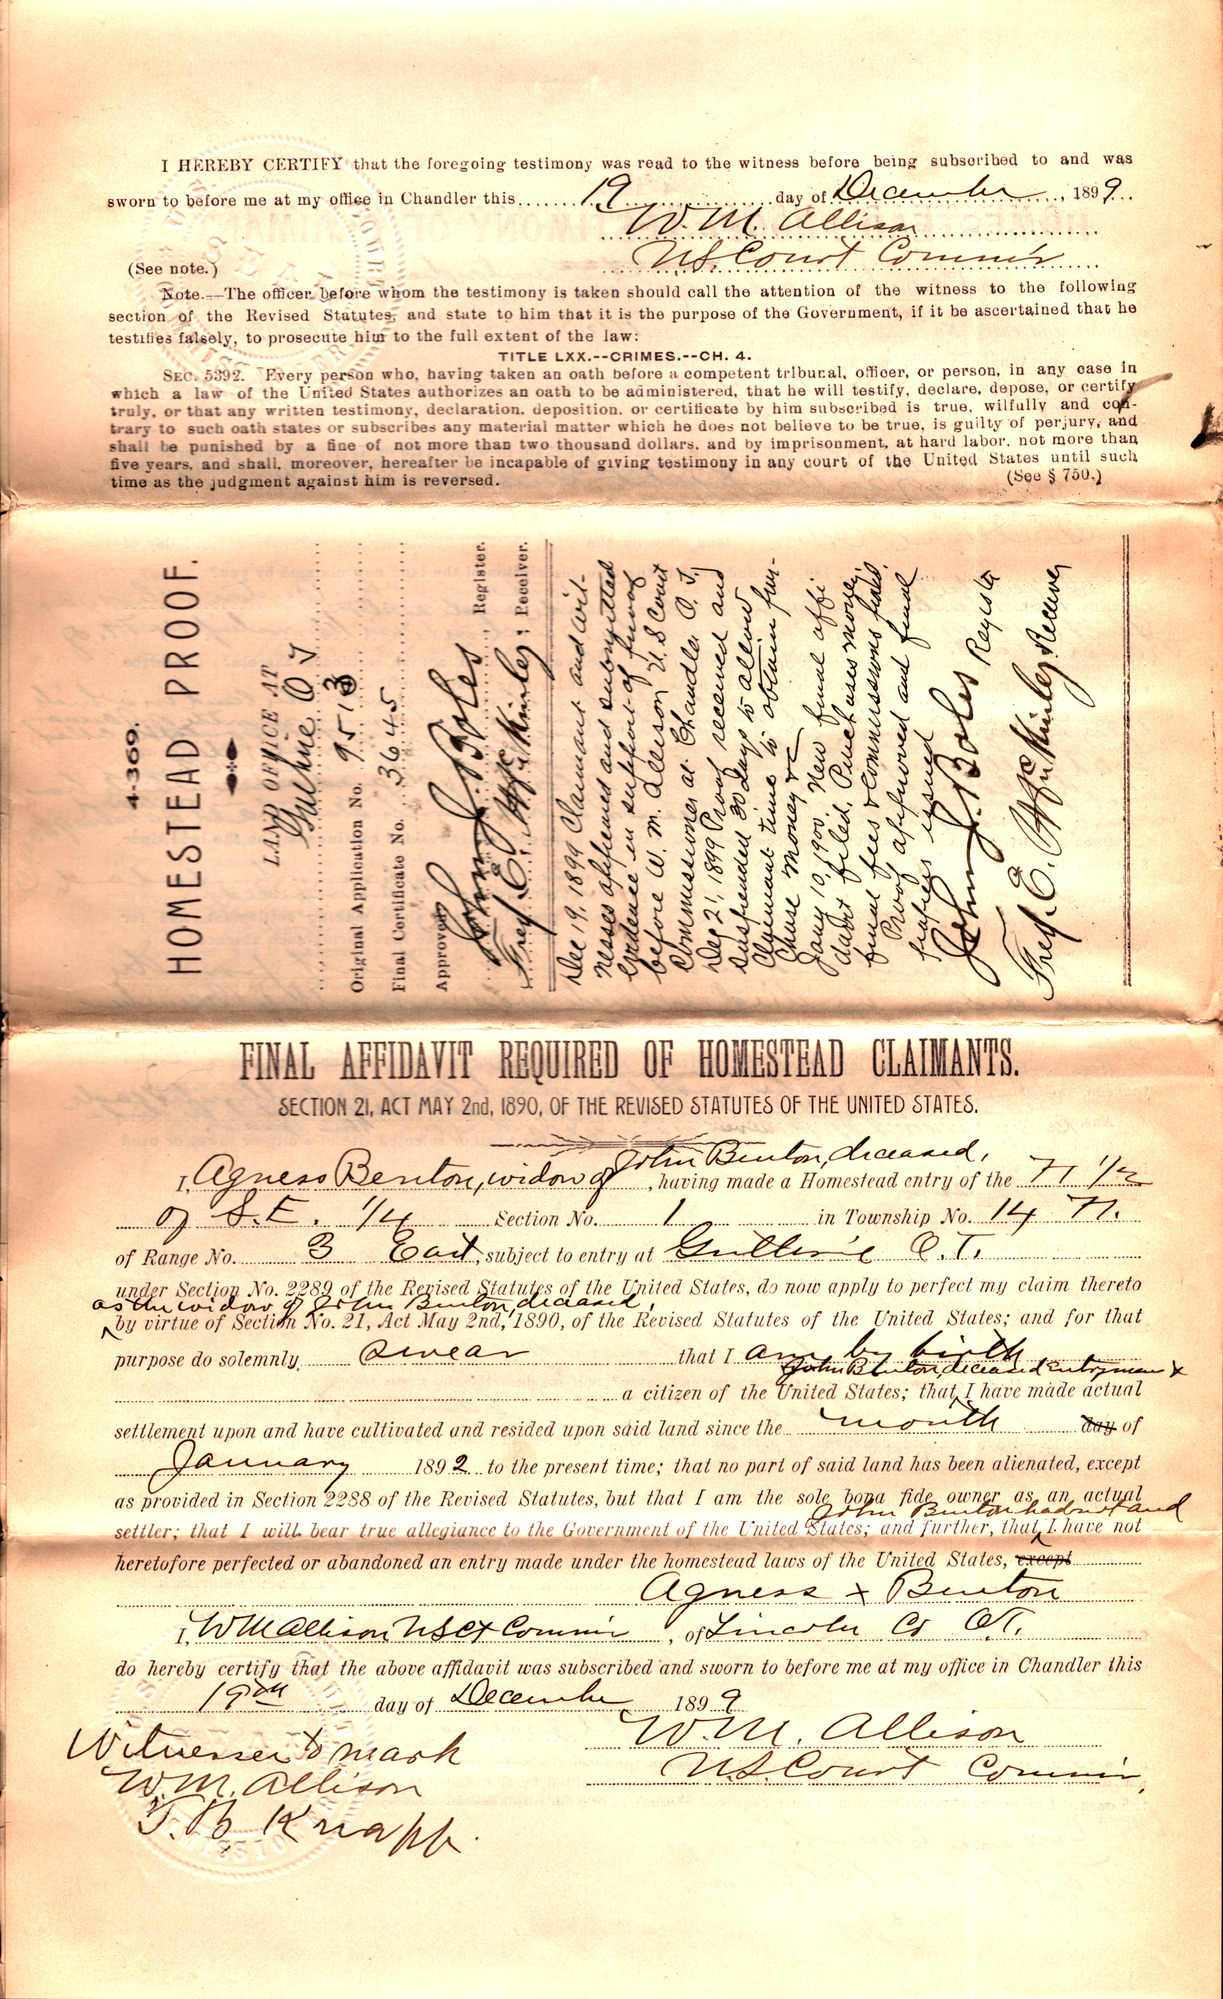 I HEREBY CERTIFY that the foregoing testimony was read to the witness before being subscribed to and was
sworn to before me at my office in Chandler this 19 day of December, 1899.
W. M. Allison
U.S. Court Commr
(See note.)
Note.—The officer before whom the testimony is taken should call the attention of the witness to the following
section of the Revised Statutes, and state to him that it is the purpose of the Government, if it be ascertained that he
testifies falsely, to prosecute him to the full extent of the law:
TITLE LXX.--CRIMES.--CH. 4.
SEC. 5392. Every person who, having taken an oath before a competent tribunal, officer, or person, in any case in
which a law of the United States authorizes an oath to be administered, that he will testify, declare, depose, or certify
truly, or that any written testimony, declaration, deposition, or certificate by him subscribed is true, wilfully and con-
trary to such oath states or subscribes any material matter which he does not believe to be true, is guilty of perjury, and
shall be punished by a fine of not more than two thousand dollars, and by imprisonment, at hard labor, not more than
five years, and shall, moreover, hereafter be incapable of giving testimony in any court of the United States until such
time as the judgment against him is reversed. (See § 750.)
4-369.
HOMESTEAD PROOF.
LAND OFFICE AT
Guthrie O T
Original Application No. 9513
Final Certificate No. 3645
Approved:
John J. Boles, Register.
Fred. E. McKinley, Receiver.
Dec 19, 1899 Claimant and wit-
nesses appeared and submitted
Evidence in support of proof
before W. M. Allison U S Court
Commissioner at Chandler O. T.
Dec 21, 1899 Proof received and
suspended 30 days to allow
Claimant time to obtain pur-
chase money &c
Jany 10, 1900 New final affi
davit filed, Purchase money,
final fees & commissions paid.
Proof approved and final
papers issued
John J. Boles Register
Fred. E. McKinley. Receiver
FINAL AFFIDAVIT REQUIRED OF HOMESTEAD CLAIMANTS.
SECTION 21, ACT MAY 2nd, 1890, OF THE REVISED STATUTES OF THE UNITED STATES.
I, Agness Benton, widow of John Benton, deceased, having made a Homestead entry of the N 1/2
of S.E. 1/4 Section No. 1 in Township No. 14 N.
of Range No. 3 East, subject to entry at Guthrie O.T.
under Section No. 2289 of the Revised Statutes of the United States, do now apply to perfect my claim thereto
as the widow of John Benton, deceased,
by virtue of Section No. 21, Act May 2nd, 1890, of the Revised Statutes of the United States; and for that
purpose do solemnly swear that I am by birth
John Benton, deceased entryman &
a citizen of the United States; that I have made actual
settlement upon and have cultivated and resided upon said land since the month day of
January 1892 to the present time; that no part of said land has been alienated, except
as provided in Section 2288 of the Revised Statutes, but that I am the sole bona fide owner as an actual
John Benton had not and
settler; that I will bear true allegiance to the Government of the United States; and further, that I have not
heretofore perfected or abandoned an entry made under the homestead laws of the United States, except
Agness x Benton
I, W M Allison US Ct Commr, of Lincoln Co O.T.
do hereby certify that the above affidavit was subscribed and sworn to before me at my office in Chandler this
19th day of December 1899
W. M. Allison
U.S. Court Commr,
Witnesses to mark
W. M. Allison
T. B Knapp.